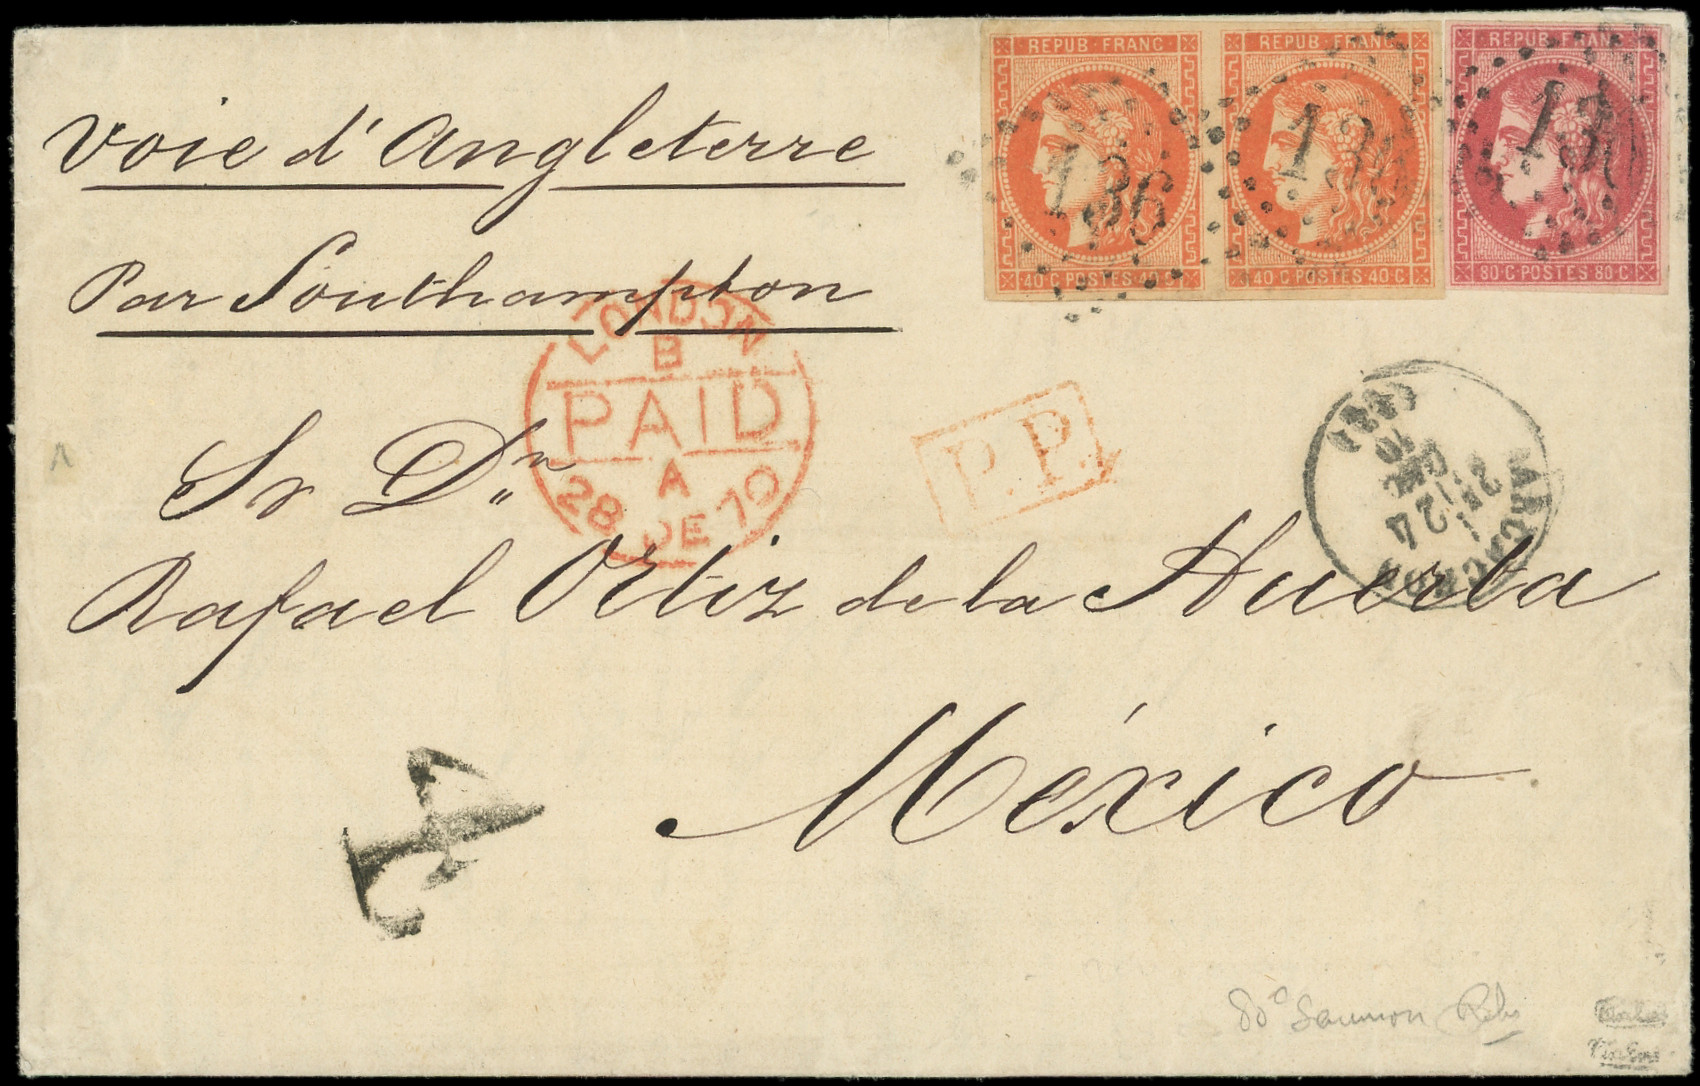 Voie d'Angleterre
Par Southampton
Sr Dn
Rafael Ortiz de la Huerta
México
REPUB·FRANC
40 C·POSTES·40 C
136
REPUB·FRANC
40 C·POSTES·40 C
13
REPUB·FRANC
80 C·POSTES·80 C
13
LONDON
B
PAID
A
28 DE 70
P.P.
24
DEC
80c Saumon